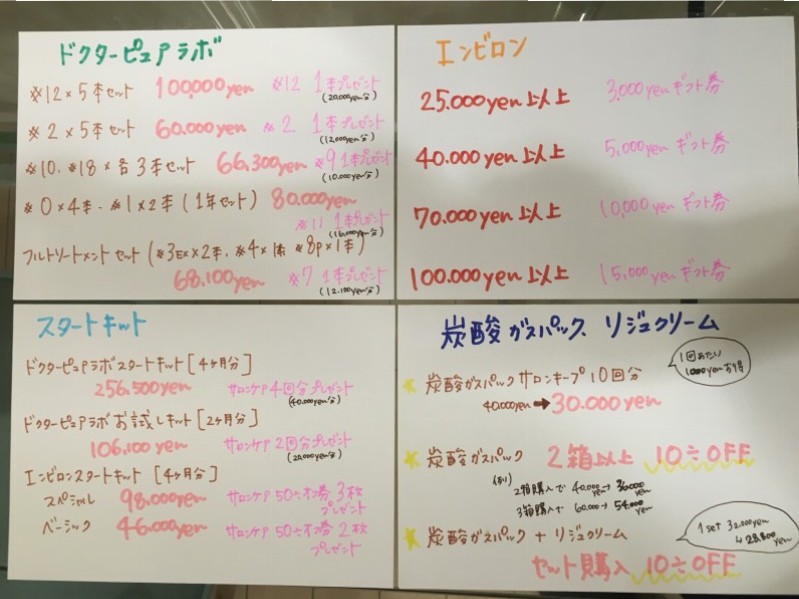 ドクターピュアラボ
※12×5本セット 100,000yen ※12 1本プレゼント
(20,000yen分)
※2×5本セット 60,000yen ※2 1本プレゼント
(12,000yen分)
※10、※18×各3本セット 66,300yen ※9 1本プレゼント
(10,000yen分)
※0×4本・※1×2本(1年セット) 80,000yen
※11 1本プレゼント
(16,000yen分)
フルトリートメントセット(※3EX×2本、※4×1本 ※8P×1本)
68,100yen ※7 1本プレゼント
(12,100yen分)
エンビロン
25,000yen以上 3,000yenギフト券
40,000yen以上 5,000yenギフト券
70,000yen以上 10,000yenギフト券
100,000yen以上 15,000yenギフト券
スタートキット
ドクターピュアラボスタートキット[4ヶ月分]
256,500yen サロンケア4回分プレゼント
(40,000yen分)
ドクターピュアラボお試しキット[2ヶ月分]
106,100yen サロンケア2回分プレゼント
(20,000yen分)
エンビロンスタートキット[4ヶ月分]
スペシャル 98,000yen サロンケア50%オフ券3枚
プレゼント
ベーシック 46,000yen サロンケア50%オフ券2枚
プレゼント
炭酸ガスパック、リジュクリーム
1回あたり
1000yenお得
炭酸ガスパックサロンキープ10回分
40,000yen→30,000yen
炭酸ガスパック 2箱以上 10%OFF
(例)
2箱購入で 40,000yen→36,000yen
3箱購入で 60,000yen→54,000yen
炭酸ガスパック+リジュクリーム
1set 32,000yen
↳28,800yen
セット購入 10%OFF